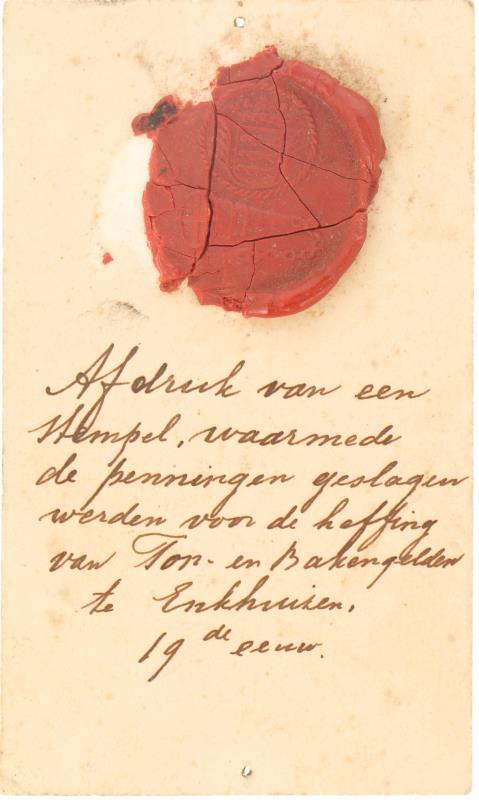 Afdruk van een
stempel, waarmede
de penningen geslagen
werden voor de heffing
van Ton- en Bakengelden
te Enkhuizen.
19de eeuw.